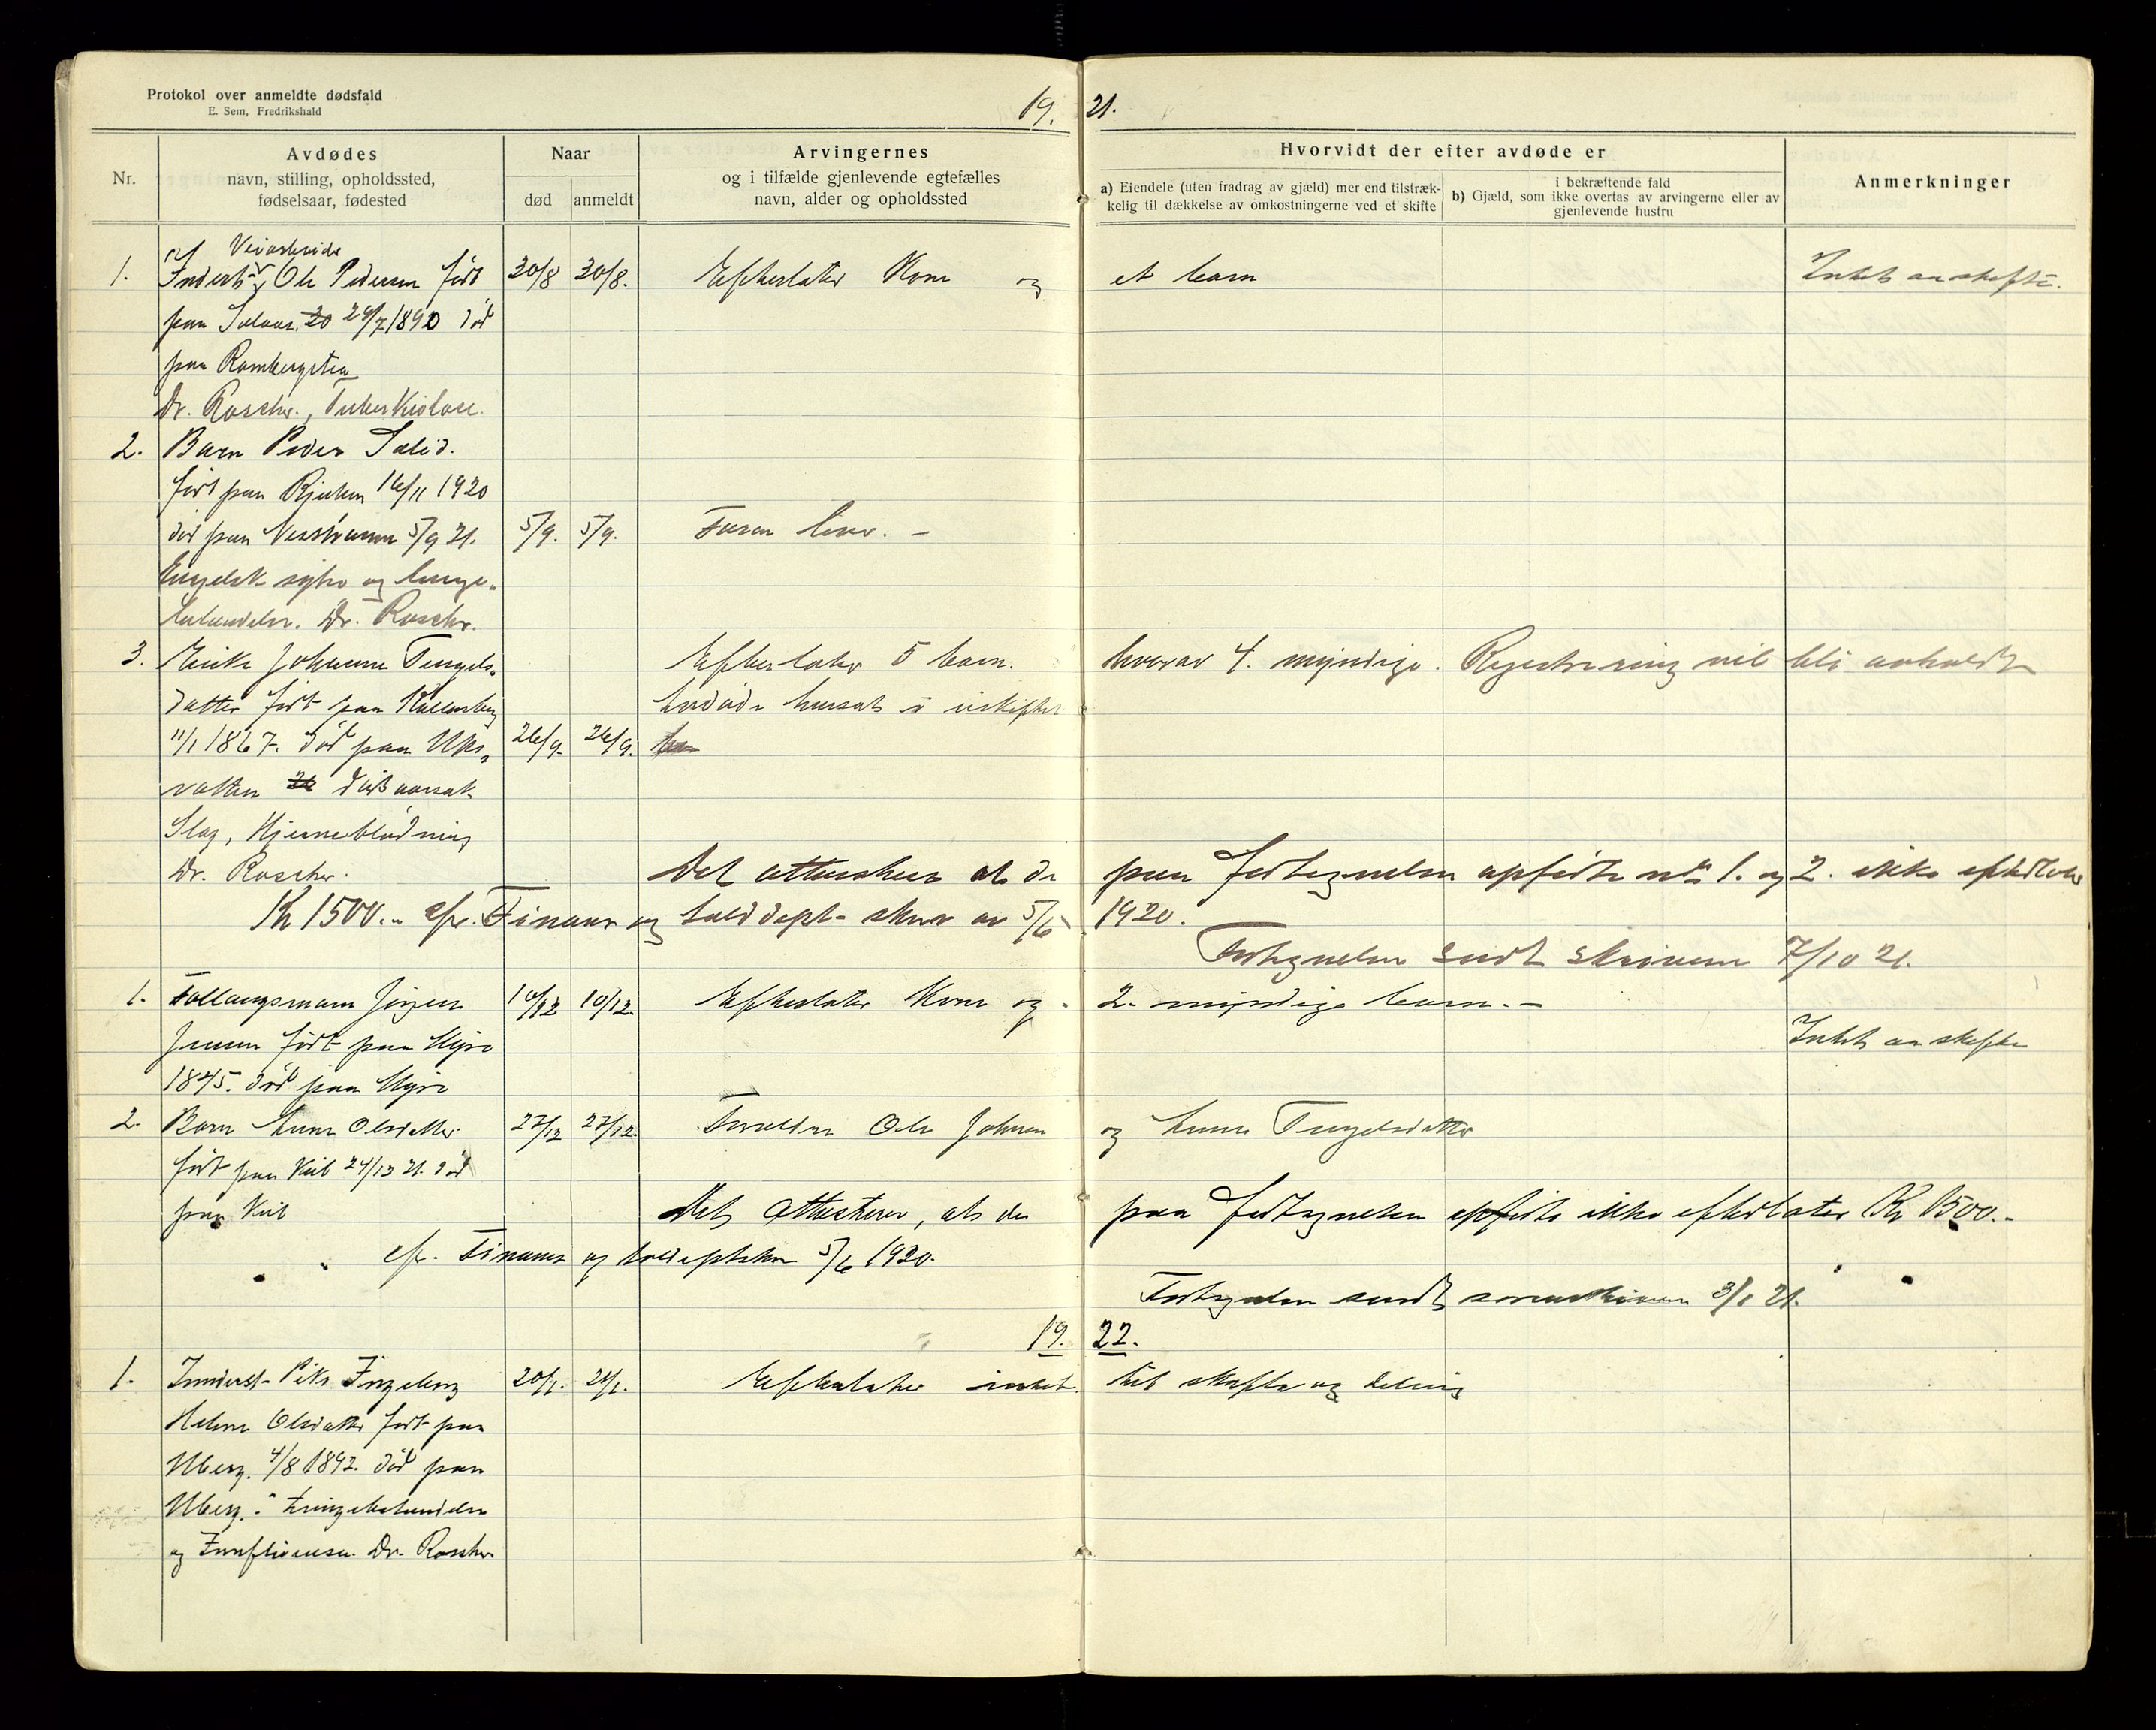 Protokol over anmeldte dødsfald
E. Sem, Fredrikshald
19. 21.
Nr.
Avdødes
navn, stilling, opholdssted,
fødselsaar, fødested
Naar
død anmeldt
Arvingernes
og i tilfælde gjenlevende egtefælles
navn, alder og opholdssted
Hvorvidt der efter avdøde er
a) Eiendele (uten fradrag av gjæld) mer end tilstræk-
kelig til dækkelse av omkostningerne ved et skifte
i bekræftende fald
b) Gjæld, som ikke overtas av arvingerne eller av
gjenlevende hustru
Anmerkninger
Veiarbeider
1. Inderst Ole Pedersen født 30/8 30/8. Efterlater Kone og et barn Intet aa skifte.
paa 29/7 1890 død
paa Rambergsten
Dr. Roscher, Tuberkulose.
2. Barn Peder
født paa Rjukan 16/11 1920
død paa 5/9 21. 5/9. 5/9. Faren lever. –
Engelsk syke og lunge-
betændelse. Dr. Roscher.
3. Enke Johanne Tengels- Efterlater 5 barn. hvorav 4. myndige. Registrering vil bli avholdt
datter født paa i uskiftet
11/1 1867. død paa 26/9. 26/9.
dødsaarsak
Slag, Hjerneblødning
Dr. Roscher.
Det attesteres at de paa fortegnelsen opførte nr 1. og 2. ikke efterlater
Kr 1500.- cfr. Finans og tolddept- skriv av 5/6 1920.
Fortegnelsen sendt skriveren 7/10 21.
1. Jørgen 10/12 10/12. Efterlater Kone og 2. myndige barn. –
Jensen født paa Intet aa skifte
1845. død paa
2. Barn Anne Olsdatter 27/12 27/12. Forældre Ole Johnsen og Anne Tengelsdatter
født paa 24/12 21. død
paa
Det attesteres, at de paa fortegnelsen opførte ikke efterlater Kr 1500.-
cfr. Finans og tolddeptskr 5/6 1920.
Fortegnelsen sendt sorenskriveren 3/1 21.
19. 22.
1. Inderst- Pike Ingeborg 20/1. 21/1. Efterlater intet til skifte og deling
Helene Olsdatter født paa
4/8 1892. død paa
Lungebetændelse
og Influensa. Dr. Roscher